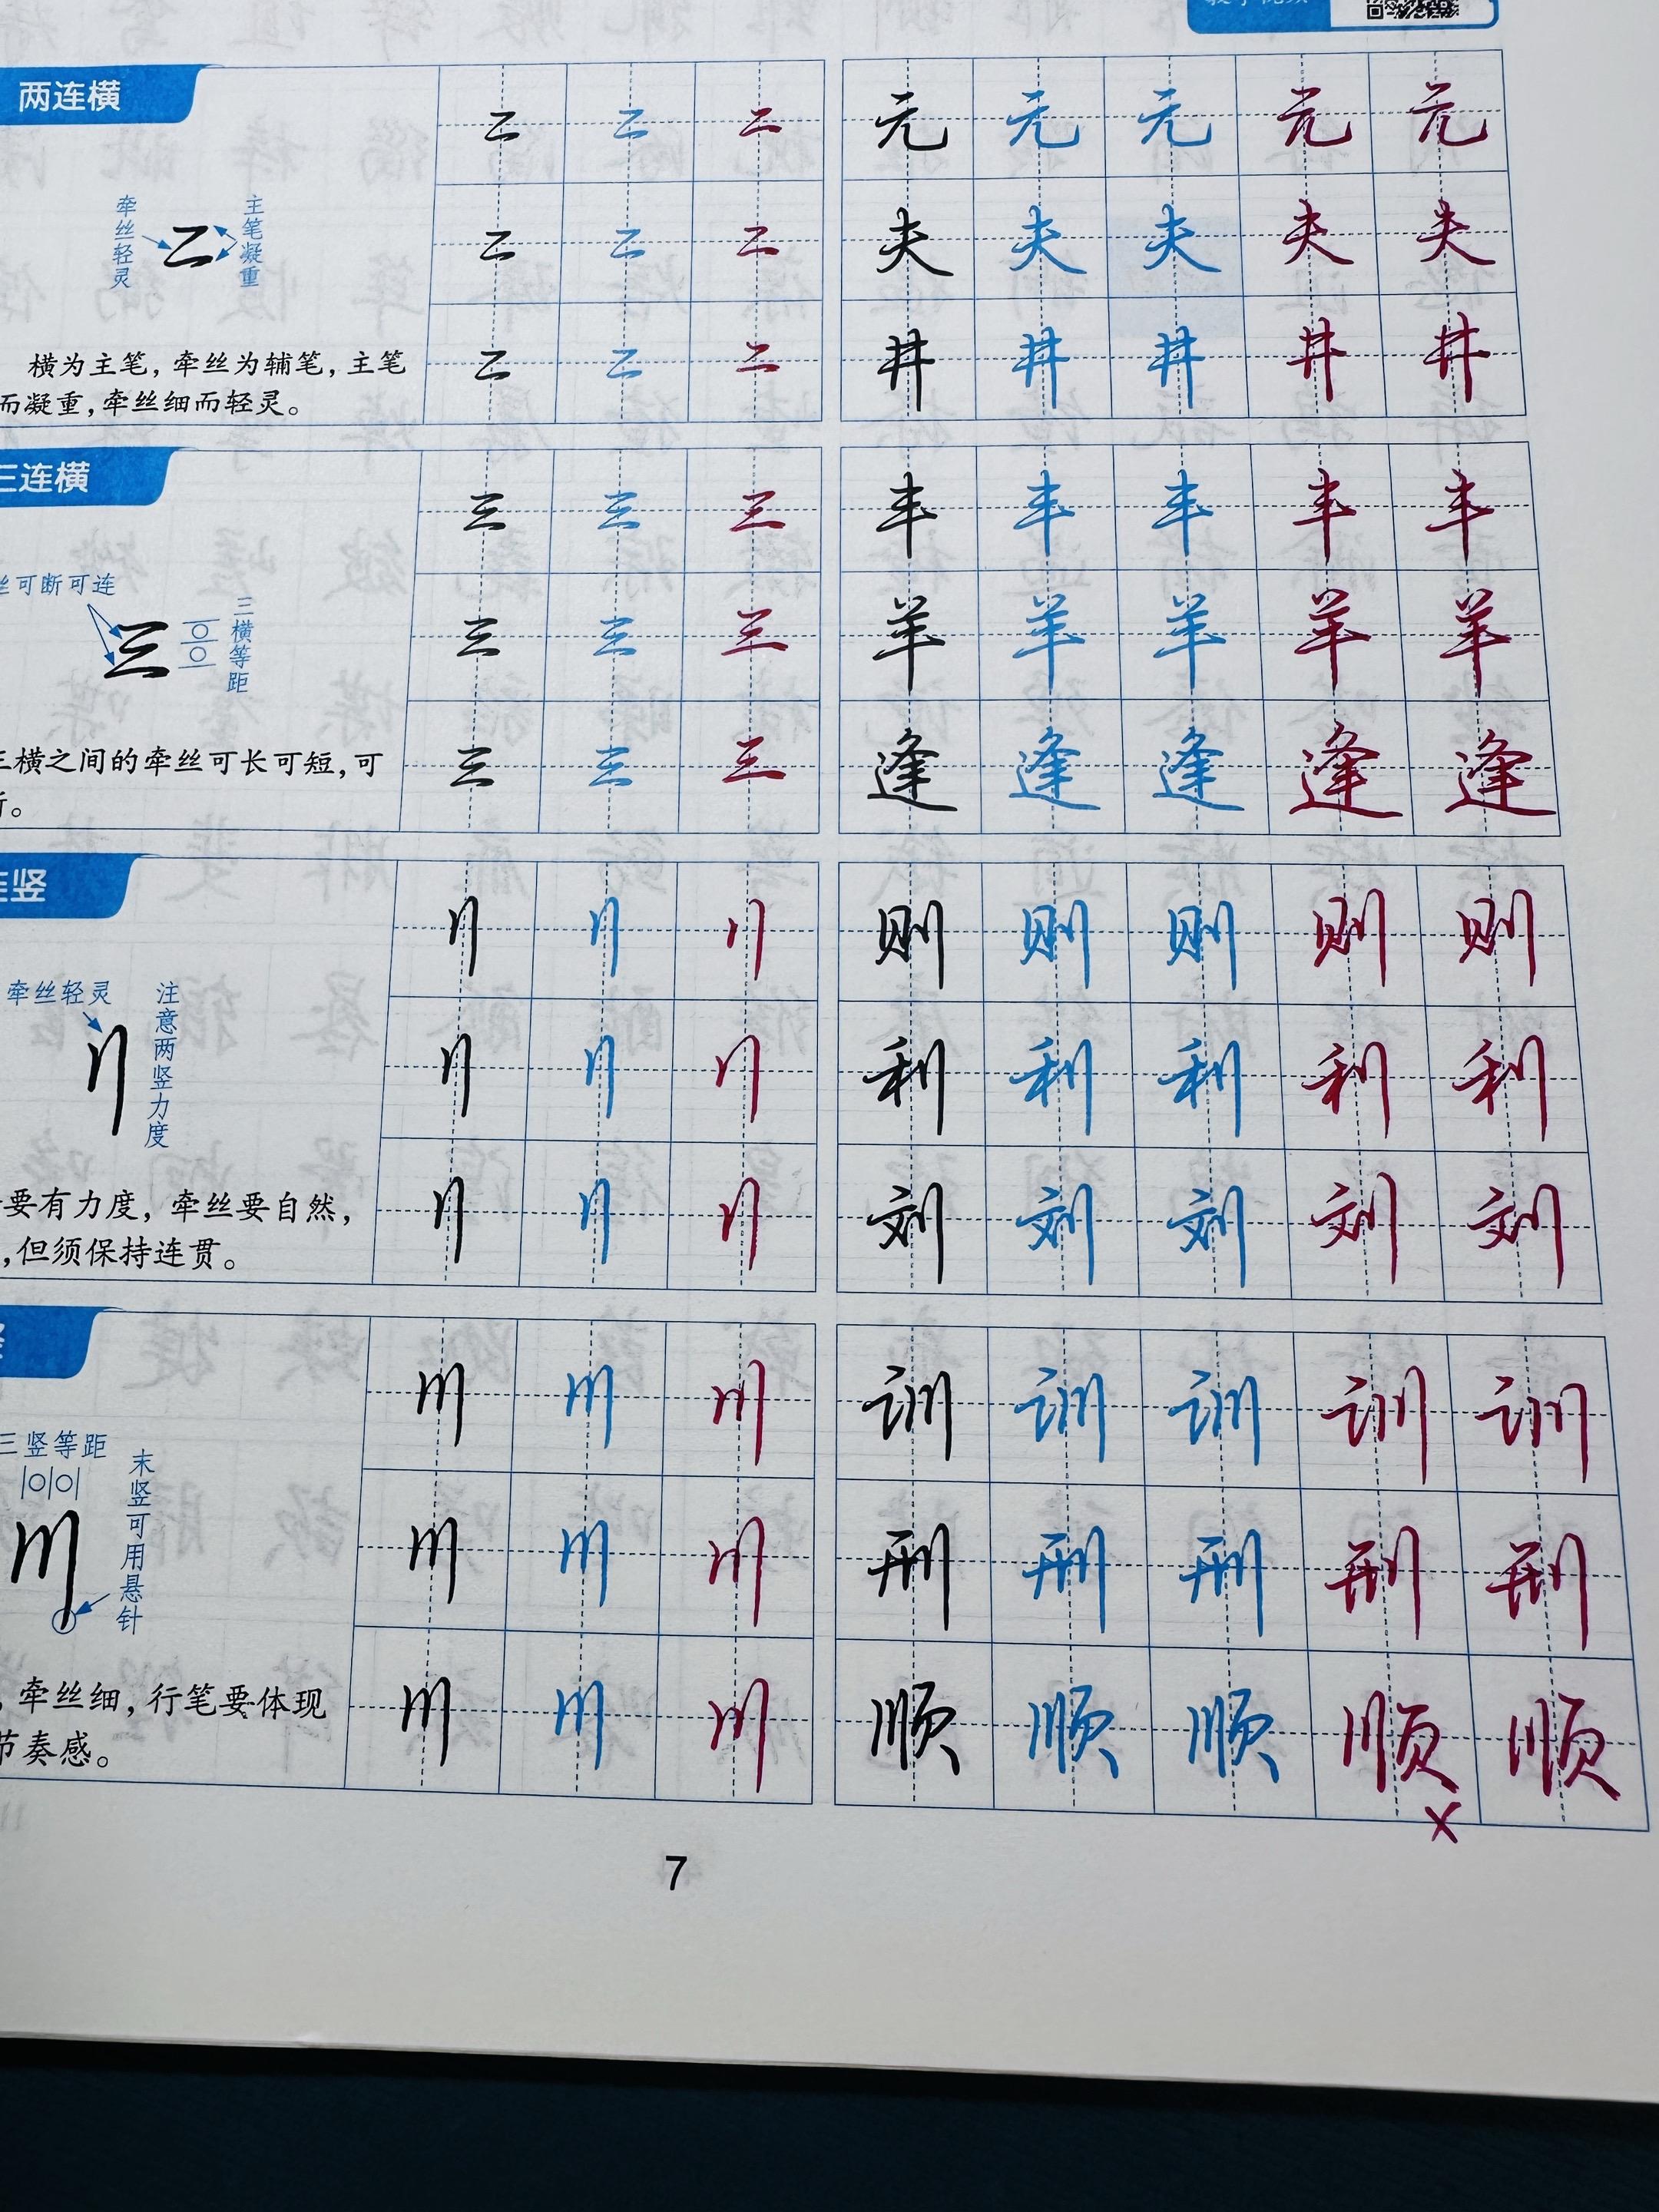 两连横
牵丝轻灵
主笔凝重
横为主笔，牵丝为辅笔，主笔
而凝重，牵丝细而轻灵。
二 二 二 元 元 元 元 元
二 二 二 夫 夫 夫 夫 夫
二 二 二 井 井 井 井 井
三连横
丝可断可连
三横等距
三横之间的牵丝可长可短，可
。
三 三 三 丰 丰 丰 丰 丰
三 三 三 羊 羊 羊 羊 羊
三 三 三 逢 逢 逢 逢 逢
连竖
牵丝轻灵
注意两竖力度
要有力度，牵丝要自然，
，但须保持连贯。
刂 刂 刂 则 则 则 则 则
刂 刂 刂 利 利 利 利 利
刂 刂 刂 刘 刘 刘 刘 刘
三竖等距
末竖可用悬针
，牵丝细，行笔要体现
节奏感。
川 川 川 训 训 训 训 训
川 川 川 刑 刑 刑 刑 刑
川 川 川 顺 顺 顺 顺 顺
×
7